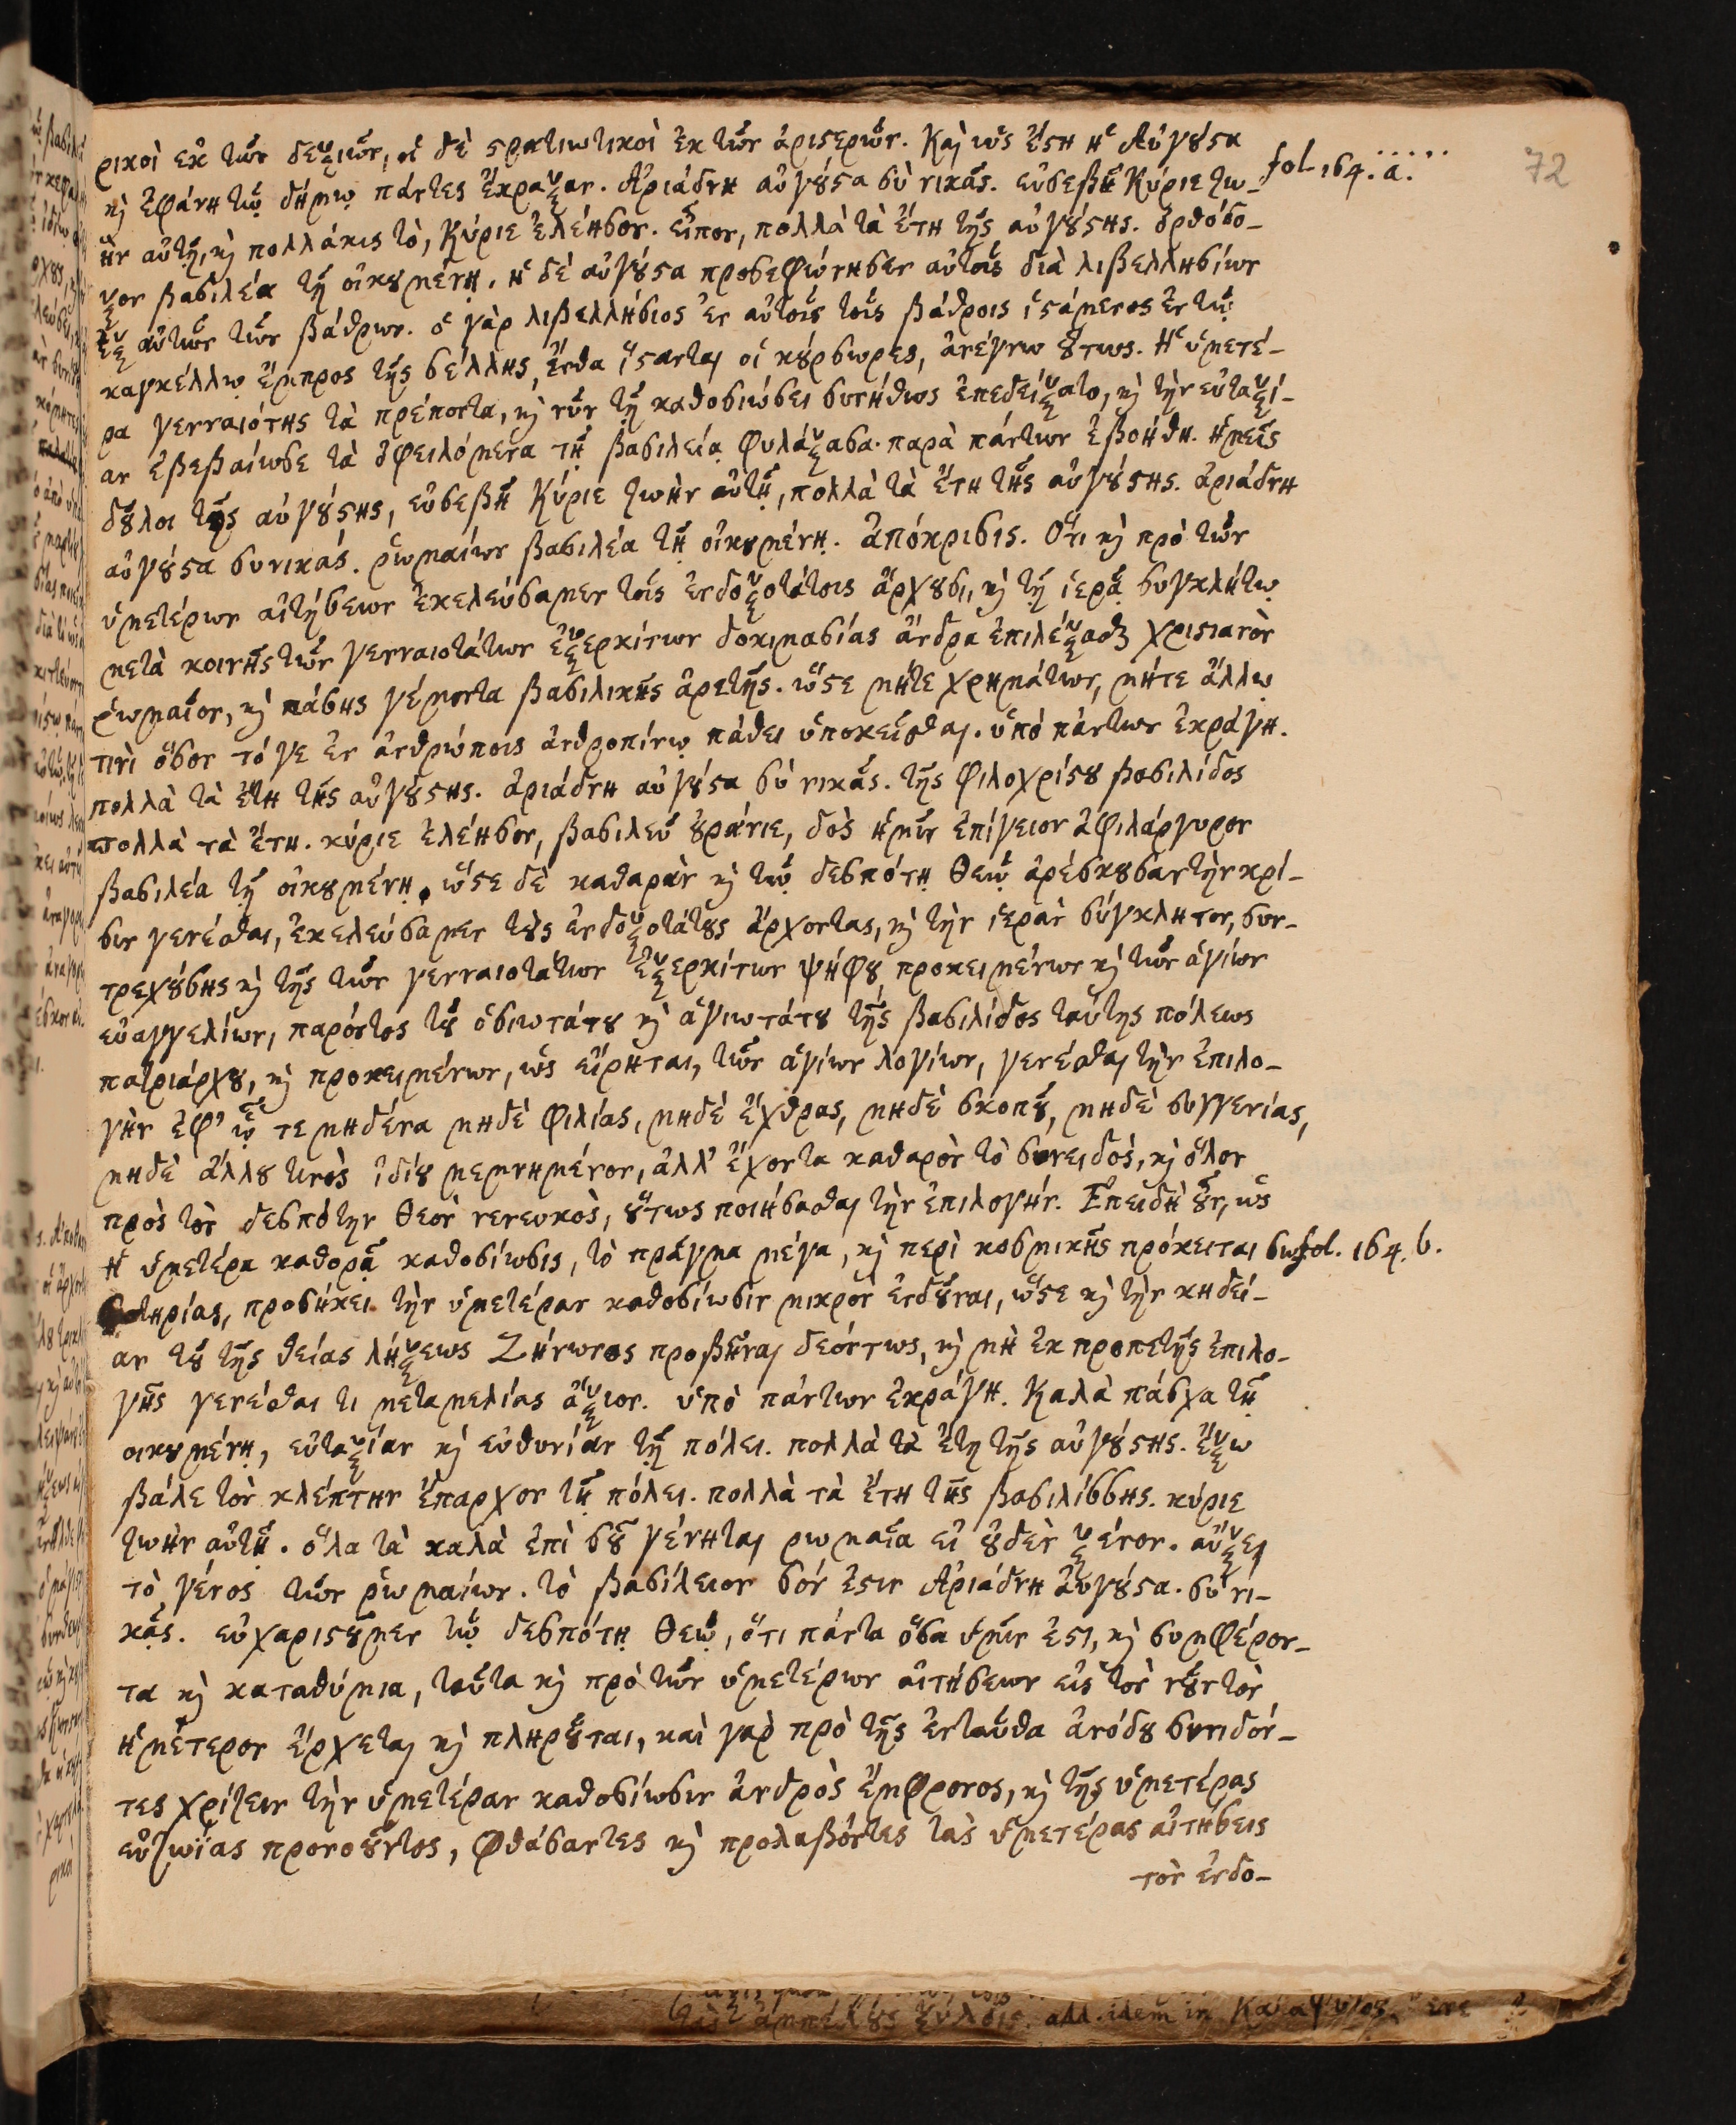 ρικοὶ ἐκ τῶν δεξιῶν, οἱ δὲ στρατιωτικοὶ ἐκ τῶν ἀριστερῶν. Καὶ ὡς ἔστη ἡ Αὐγούστα fol. 164. a.
72
καὶ ἐφάνη τῷ δήμῳ πάντες ἔκραξαν. Ἀριάδνη αὐγούστα σὺ νικᾷς. εὐσεβῆ Κύριε ζω-
ὴν αὐτῇ, καὶ πολλάκις τὸ, Κύριε ἐλέησον. εἶπον, πολλὰ τὰ ἔτη τῆς αὐγούστης. ὀρθόδο-
ξον βασιλέα τῇ οἰκουμένῃ. ἡ δὲ αὐγούστα προσεφώνησεν αὐτοῖς διὰ λιβελλησίων
ἐξ αὐτῶν τῶν βάθρων. ὁ γὰρ λιβελλήσιος ἐν αὐτοῖς τοῖς βάθροις ἱστάμενος ἐν τῷ
καγκέλλῳ ἔμπρος τῆς σέλλης, ἔνθα ἵστανται οἱ κούρσωρες, ἀνέγνω οὕτως. Ἡ ὑμετέ-
ρα γενναιότης τὰ πρέποντα, καὶ νῦν τῇ καθοσιώσει συνήθως ἐπεδείξατο, καὶ τὴν εὐταξί-
αν ἐβεβαίωσε τὰ ὀφειλόμενα τῇ βασιλείᾳ φυλάξασα. παρὰ πάντων ἐβοήθη. ἡμεῖς
δοῦλοι τῆς αὐγούστης, εὐσεβῆ Κύριε ζωὴν αὐτῇ, πολλὰ τὰ ἔτη τῆς αὐγούστης. ἀριάδνη
αὐγούστα συνικάς. ῥωμαίων βασιλέα τῇ οἰκουμένῃ. ἀπόκρισις. Ὅτι καὶ πρὸ τῶν
ὑμετέρων αἰτήσεων ἐκελεύσαμεν τοῖς ἐνδοξοτάτοις ἄρχουσι, καὶ τῇ ἱερᾷ συγκλήτῳ
μετὰ κοινῆς τῶν γενναιοτάτων ἐξερκίτων δοκιμασίας ἄνδρα ἐπιλέξασθαι χριστιανὸν
ῥωμαῖον, καὶ πάσης γέμοντα βασιλικῆς ἀρετῆς. ὥστε μήτε χρημάτων, μήτε ἄλλῳ
τινὶ ὅσον τό γε ἐν ἀνθρώποις ἀνθροπίνῳ πάθει ὑποκεῖσθαι. ὑπὸ πάντων ἐκράγη.
πολλὰ τὰ ἔτη τῆς αὐγούστης. ἀριάδνη αὐγούστα σὺ νικᾷς. τῆς φιλοχρίστου βασιλίδος
πολλὰ τὰ ἔτη. κύριε ἐλέησον, βασιλεῦ οὐράνιε, δὸς ἡμῖν ἐπίγειον ἀφιλάργυρον
βασιλέα τῇ οἰκουμένῃ. ὥστε δὲ καθαρὰν καὶ τῷ δεσπότῃ Θεῷ ἀρέσκουσαν τὴν κρί-
σιν γενέσθαι, ἐκελεύσαμεν τοὺς ἐνδοξοτάτους ἄρχοντας, καὶ τὴν ἱερὰν σύγκλητον, συν-
τρεχούσης καὶ τῆς τῶν γενναιοτάτων ἐξερκίτων ψήφου προκειμένων καὶ τῶν ἁγίων
εὐαγγελίων, παρόντος τοῦ ὁσιωτάτου καὶ ἁγιωτάτου τῆς βασιλίδος ταύτης πόλεως
πατριάρχου, καὶ προκειμένων, ὡς εἴρηται, τῶν ἁγίων λογίων, γενέσθαι τὴν ἐπιλο-
γὴν ἐφ' ᾧ τε μηδένα μηδὲ φιλίας, μηδὲ ἔχθρας, μηδὲ σκοποῦ, μηδὲ συγγενίας,
μηδὲ ἄλλου τινὸς ἰδίου μεμνημένον, ἀλλ' ἔχοντα καθαρὸν τὸ συνειδός, καὶ ὅλον
πρὸς τὸν δεσπότην Θεὸν νενευκὸς, οὕτως ποιήσασθαι τὴν ἐπιλογήν. Ἐπειδὴ οὖν, ὡς
ἡ ὑμετέρα καθορᾷ καθοσίωσις, τὸ πρᾶγμα μέγα, καὶ περὶ κοσμικῆς πρόκειται σω- fol. 164. b.
τηρίας, προσήκει τὴν ὑμετέραν καθοσίωσιν μικρὸν ἐνδοῦναι, ὥστε καὶ τὴν κηδεί-
αν τοῦ τῆς θείας λήξεως Ζήνωνος προβῆναι δεόντως, καὶ μὴ ἐκ προπετῆς ἐπιλο-
γῆς γενέσθαι τι μεταμελίας ἄξιον. ὑπὸ πάντων ἐκράγη. Καλὰ πάσχα τῇ
οἰκουμένῃ, εὐταξίαν καὶ εὐθυνίαν τῇ πόλει. πολλὰ τὰ ἔτη τῆς αὐγούστης. ἔξω
βάλε τὸν κλέπτην ἔπαρχον τῇ πόλει. πολλὰ τὰ ἔτη τῆς βασιλίσσης. κύριε
ζωὴν αὐτῇ. ὅλα τὰ καλὰ ἐπὶ σοῦ γένηται ρωμαῖα εἰ οὐδὲν ξένον. αὔξει
τὸ γένος τῶν ῥωμαίων. τὸ βασίλειον σόν ἐστιν Ἀριάδνη αὐγούστα. σὺ νι-
κᾷς. εὐχαριστοῦμεν τῷ δεσπότῃ Θεῷ, ὅτι πάντα ὅσα ὑμῖν ἐστι, καὶ συμφέρον-
τα καὶ καταθύμια, ταῦτα καὶ πρὸ τῶν ὑμετέρων αἰτήσεων εἰς τὸν νοῦν τὸν
ἡμέτερον ἔρχεται καὶ πληροῦται, καὶ γὰρ πρὸ τῆς ἐνταῦθα ἀνόδου συνιδόν-
τες χρίζειν τὴν ὑμετέραν καθοσίωσιν ἀνδρὸς ἔμφρονος, καὶ τῆς ὑμετέρας
εὐζωΐας προνοοῦντος, φθάσαντες καὶ προλαβόντες τὰς ὑμετέρας αἰτήσεις
τὸν ἐνδο-